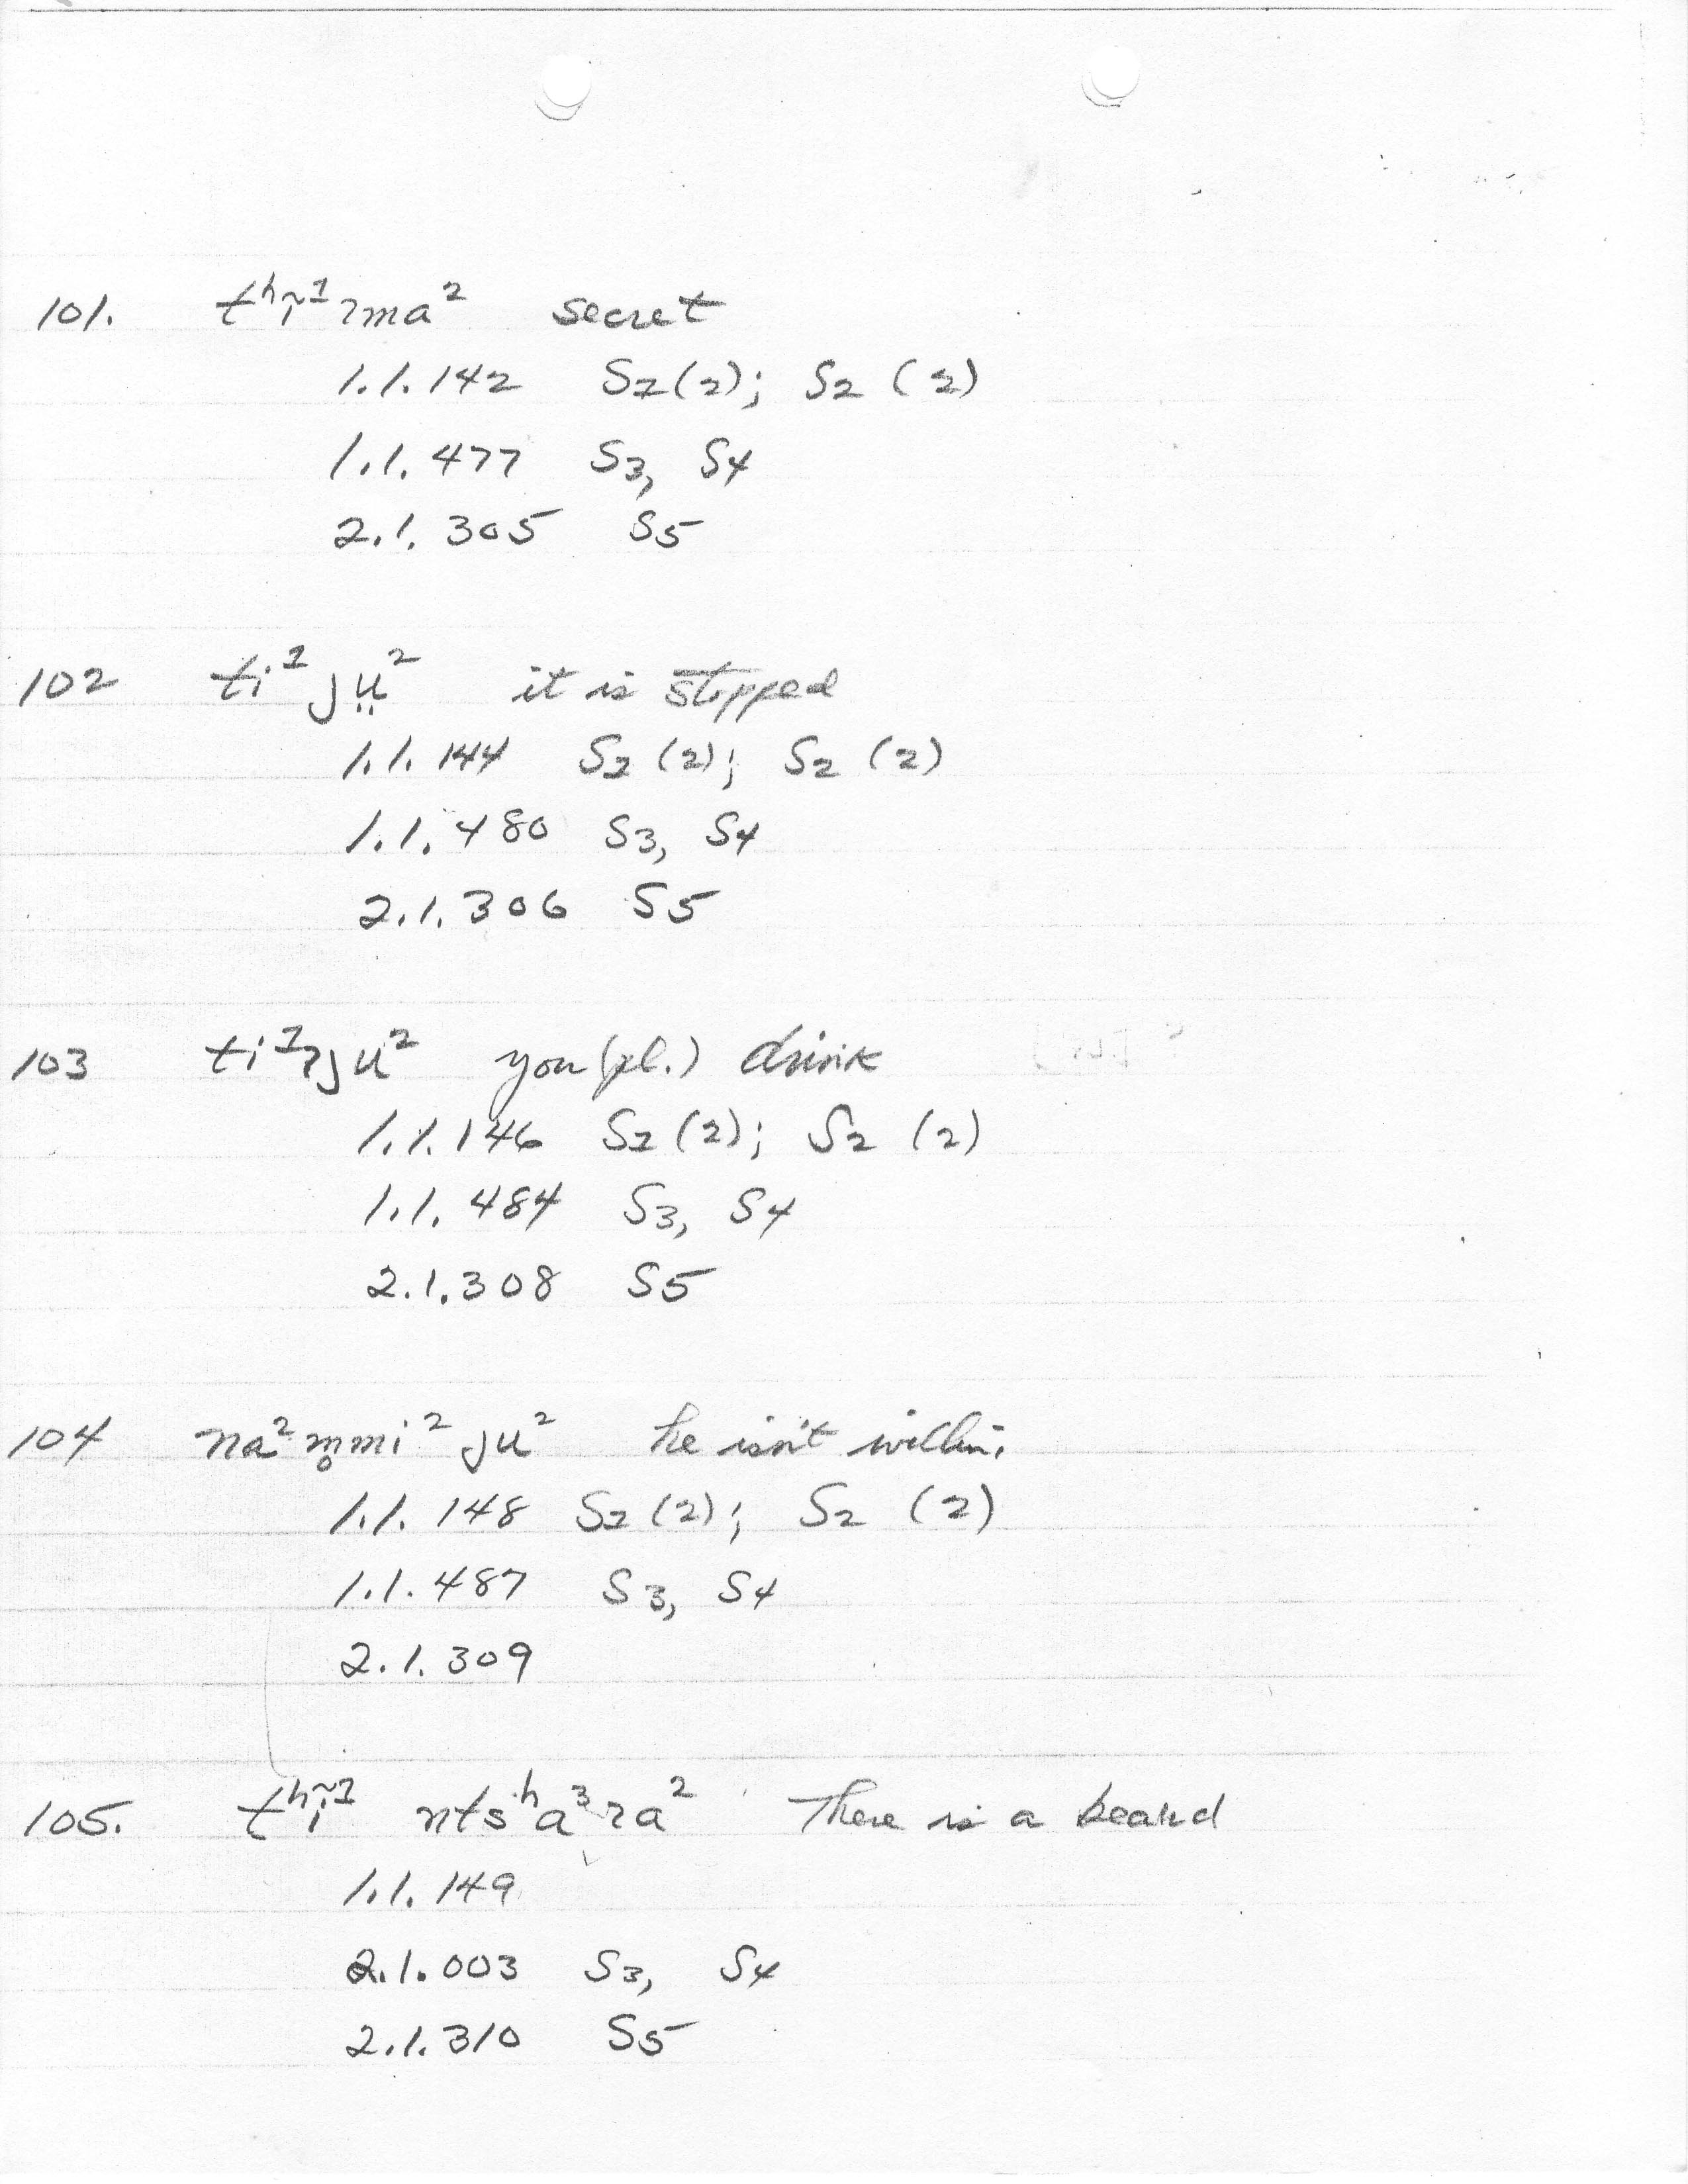 101. tʰĩ¹ʔma² secret
1.1.142 S1(2); S2 (2)
1.1.477 S3, S4
2.1.305 S5
102 ti¹jṳ² it is stopped
1.1.144 S1 (2); S2 (2)
1.1.480 S3, S4
2.1.306 S5
103 ti¹ʔju² you (pl.) drink
1.1.146 S1 (2); S2 (2)
1.1.484 S3, S4
2.1.308 S5
104 na²m̥mi²ju² he isn't
1.1.148 S1 (2); S2 (2)
1.1.487 S3, S4
2.1.309
105. tʰĩ¹ ntsʰa³ʔa² There is a beard
1.1.149
2.1.003 S3, S4
2.1.310 S5